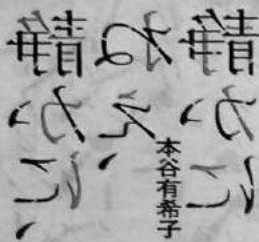 静かに、
ねぇ、
静かに
本谷有希子